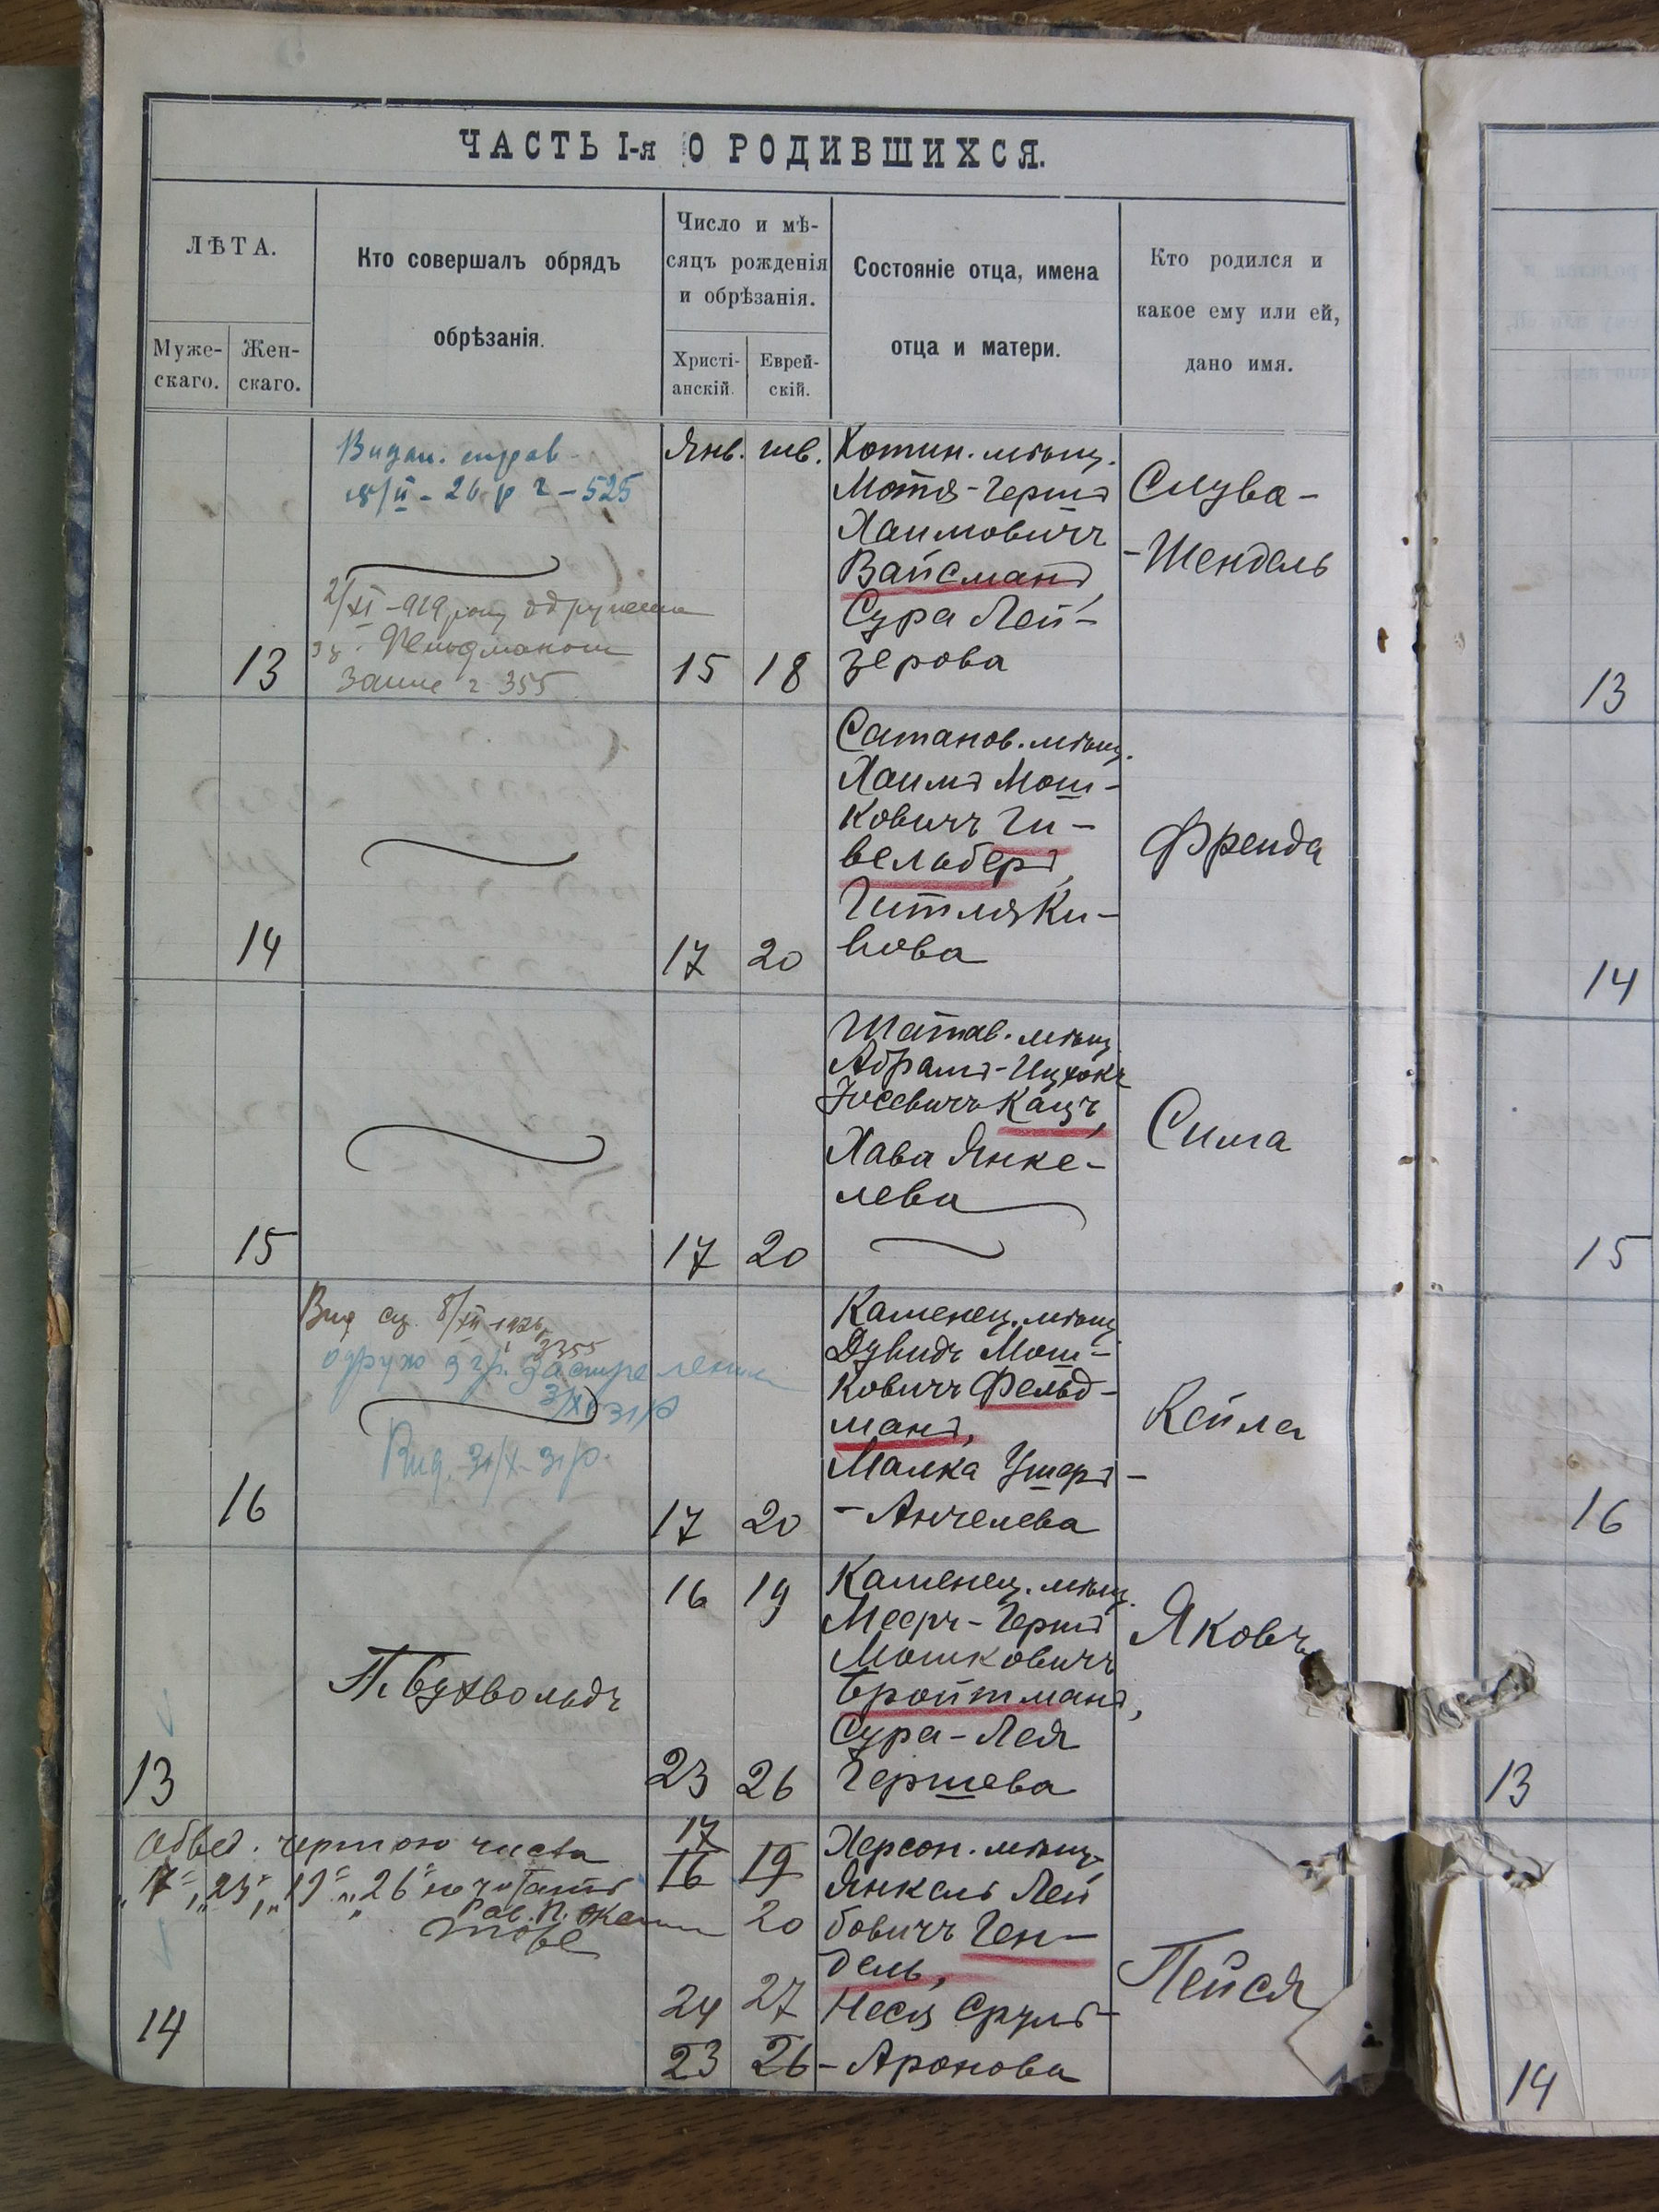 ЧАСТЬ I-я О РОДИВШИХСЯ.
ЛѢТА.
Муже-
скаго.
Жен-
скаго.
Кто совершалъ обрядъ
обрѣзанія.
Число и мѣ-
сяцъ рожденія
и обрѣзанія.
Христі-
анскій.
Еврей-
скій.
Состояніе отца, имена
отца и матери.
Кто родился и
какое ему или ей,
дано имя.
13
26 р 2-525
2/XI-919
355
Янв.
шв.
15
18
Хотин. мѣщ.
Мотя-Гершъ
Хаимовичъ
Вайсманъ,
Сура Лей-
зерова
Слува-
-Шендель
14
17
20
Сатанов. мѣщ.
Хаимъ Мош-
ковичъ Ги-
вельберъ,
Гитля Ки-
вова
Фрейда
15
17
20
Шатав. мѣщ.
Абрамъ-Ицхокъ
Іосевичъ Кацъ,
Хава Янке-
лева
Сима
16
Вид 8/XII-1926
3355
одруж з гр.
3/XI 31р
Вид. 31/X-31р.
17
20
Каменец. мѣщ.
Дувидъ Мош-
ковичъ Фельд-
манъ,
Малка Ушеръ-
-Анчелева
Кейла
13
П. Бухвольдъ
16
19
23
26
Каменец. мѣщ.
Мееръ-Гершъ
Мошковичъ
Бройтманъ,
Сура-Лея
Гершева
Яковъ
Обвед. чертою числа
"17", "23", "19" "26" не читать
Рав. П.
14
17
16
19
20
24
27
23
26
Херсон. мѣщ.
Янкель Лей
бовичъ Ген-
дель,
Неся Сруль-
-Аронова
Пейся
13
14
15
16
13
14